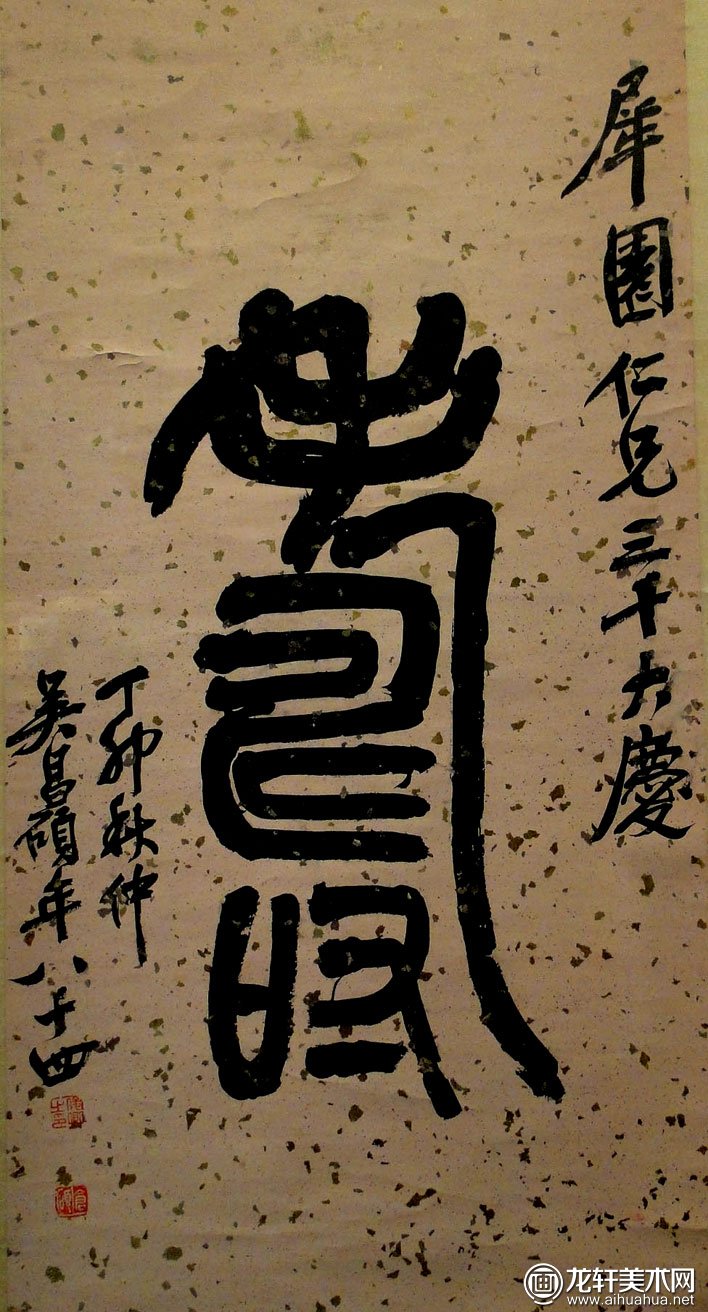 犀園仁兄三十大慶
壽
丁卯秋仲
吳昌碩年八十四
画 龙轩美术网
www.aihuahua.net